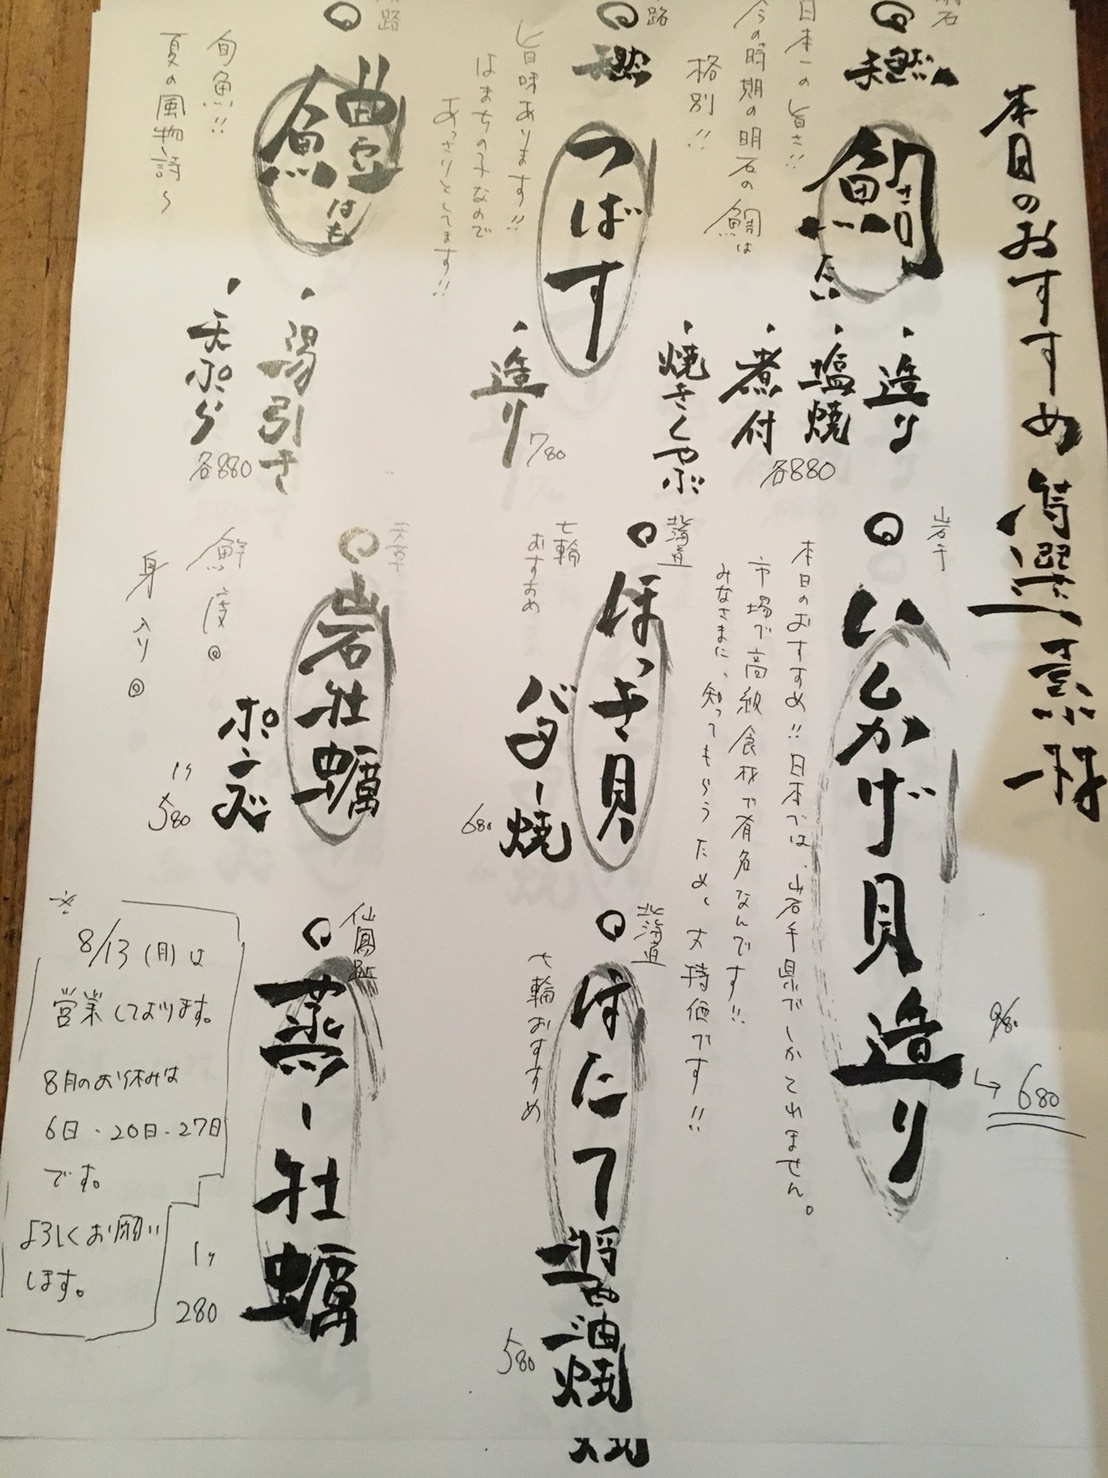 本日のおすすめ 特選
明石
天然
鯛
たい
日本一の旨さ!!
今の時期の明石の鯛は
格別!!
・造り
・塩焼
・煮付
・焼きしゃぶ
各880
路
天然
つばす
旨味あります!!
はまちの子なので
あっさりとしてます!!
・造り
780
路
鱧
はも
旬魚!!
夏の風物詩〜
・湯引き
・天ぷら
各880
岩手
いしかげ貝造り
980
→680
本日のおすすめ!!日本では、岩手県でしかとれません。
市場で高級食材で有名なんです!!
みなさまに、知ってもらうため、大特価です!!
北海道
ほっき貝
バター焼
680
七輪
おすすめ
天草
岩牡蠣
ポンズ
1ヶ
580
鮮度◎
身入り◎
北海道
ほたて醤油焼
580
七輪おすすめ
仙鳳趾
蒸し牡蠣
1ヶ
280
※
8/13(月)は
営業しております。
8月のお休みは
6日・20日・27日
です。
よろしくお願い
します。